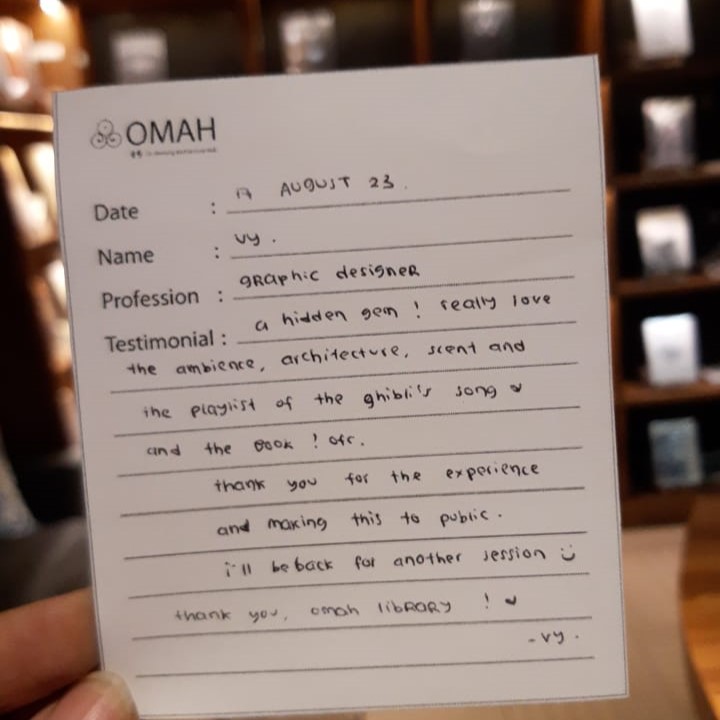 OMAH
Date : 17 AUGUST 23.
Name : vy.
Profession : gRaphic designeR
Testimonial : a hidden gem ! really love
the ambience, architecture, scent and
the playlist of the ghibli's song ♥
and the book ! ofc.
thank you for the experience
and making this to public.
i'll be back for another session ☺
thank you, omah libRARY ! ♥
- vy.